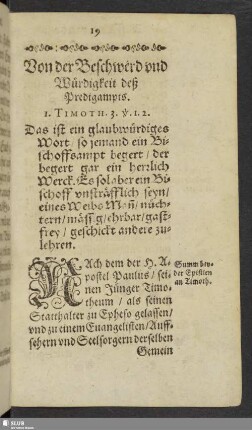 19
Von der Beschwerd vnd
Würdigkeit deß
Predigampts.
1. TIMOTH. 3. ℣. 1. 2.
Das ist ein glaubwürdiges
Wort / so jemand ein Bi-
schoffsampt begert / der
begert gar ein herzlich
Werck. Es sol aber ein Bi-
schoff vnsträfflich seyn /
eines Weibs Mañ / nüch-
tern / mässig / ehrbar / gast-
frey / geschickt andere zu-
lehren.
NAch dem der H. A-
postel Paulus / sei-
nen Jünger Timo-
theum / als seinen
Statthalter zu Epheso gelassen /
vnd zu einem Euangelisten / Auff-
sehern vnd Seelsorgern derselben
Gemein
Summ bey-
der Episteln
an Timoth.
SLUB